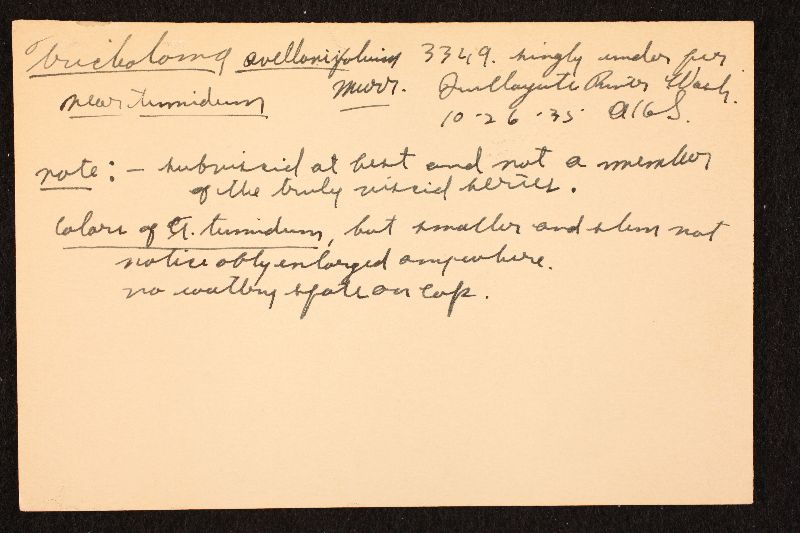 Tricholoma avellanifolium 3349. singly under fir
near tumidum Murr. Quillayute River Wash.
10-26-35 AHS.
note: - subviscid at best and not a member
of the truly viscid series.
Colors of T. tumidum, but smaller and stem not
noticeably enlarged anywhere.
no watery spots on cap.